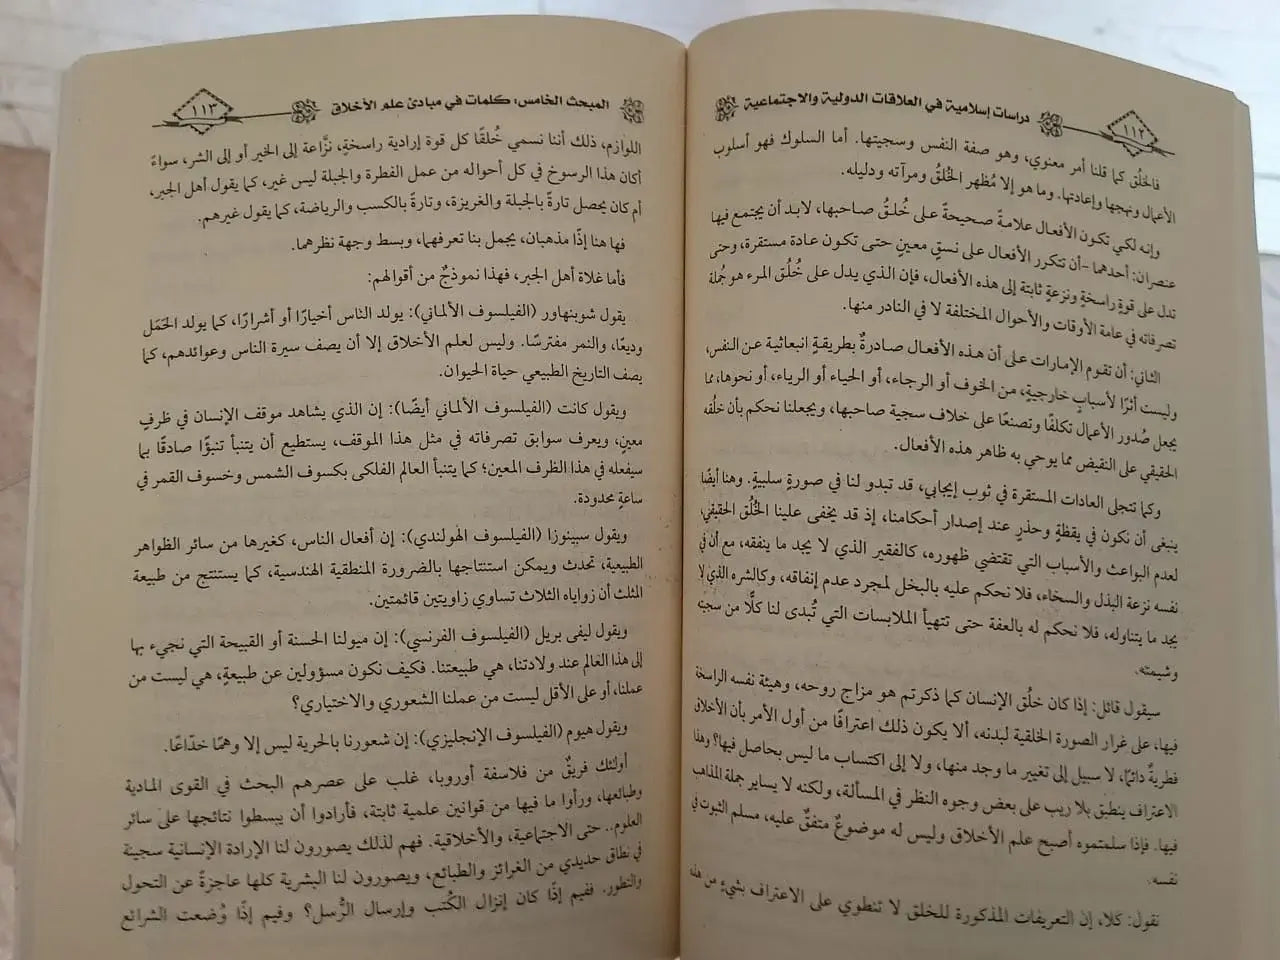 ١١٢
دراسات إسلامية في العلاقات الدولية والاجتماعية
فالخلُق كما قلنا أمر معنوي، وهو صفة النفس وسجيتها. أما السلوك فهو أسلوب
الأعمال ونهجها وإعادتها. وما هو إلا مُظهر الخُلقُ ومرآته ودليله.
وإنه لكي تكون الأفعال علامةً صحيحةً على خُلقُ صاحبها، لابد أن يجتمع فيها
عنصران: أحدهما -أن تتكرر الأفعال على نسقٍ معينٍ حتى تكون عادة مستقرة، وحتى
تدل على قوةٍ راسخةٍ ونزعةٍ ثابتة إلى هذه الأفعال، فإن الذي يدل على خُلُق المرء هو جُملة
تصرفاته في عامة الأوقات والأحوال المختلفة لا في النادر منها.
الثاني: أن تقوم الإمارات على أن هذه الأفعال صادرةٌ بطريقةٍ انبعاثية عن النفس،
وليست أثرًا لأسبابٍ خارجيةٍ، من الخوف أو الرجاء، أو الحياء أو الرياء، أو نحوها، مما
يجعل صُدور الأعمال تكلفًا وتصنعًا على خلاف سجية صاحبها، ويجعلنا نحكم بأن خلُقه
الحقيقي على النقيض مما يوحي به ظاهر هذه الأفعال.
وكما تتجلى العادات المستقرة في ثوب إيجابي، قد تبدو لنا في صورةٍ سلبيةٍ. وهنا أيضًا
ينبغى أن نكون في يقظةٍ وحذرٍ عند إصدار أحكامنا، إذ قد يخفى علينا الخُلُق الحقيقي،
لعدم البواعث والأسباب التي تقتضي ظهوره، كالفقير الذي لا يجد ما ينفقه، مع أن في
نفسه نزعة البذل والسخاء، فلا نحكم عليه بالبخل لمجرد عدم إنفاقه، وكالشره الذي لا
يجد ما يتناوله، فلا نحكم له بالعفة حتى تتهيأ الملابسات التي تُبدى لنا كلًّا من سجيته
وشيمته.
سيقول قائل: إذا كان خلُق الإنسان كما ذكرتم هو مزاج روحه، وهيئة نفسه الراسخة
فيها، على غرار الصورة الخلقية لبدنه، ألا يكون ذلك اعترافًا من أول الأمر بأن الأخلاق
فطريةٌ دائمًا، لا سبيل إلى تغيير ما وجد منها، ولا إلى اكتساب ما ليس بحاصل فيها؟ وهذا
الاعتراف ينطبق بلا ريب على بعض وجوه النظر في المسألة، ولكنه لا يساير جملة المذاهب
فيها. فإذا سلمتموه أصبح علم الأخلاق وليس له موضوعٌ متفقٌ عليه، مسلم الثبوت في
نفسه.
نقول: كلا، إن التعريفات المذكورة للخلق لا تنطوي على الاعتراف بشيءٍ من هذه
المبحث الخامس: كلمات في مبادئ علم الأخلاق
١١٣
اللوازم، ذلك أننا نسمي خُلقًا كل قوة إرادية راسخةٍ، نزَّاعة إلى الخير أو إلى الشر، سواءً
أكان هذا الرسوخ في كل أحواله من عمل الفطرة والجبلة ليس غير، كما يقول أهل الجبر،
أم كان يحصل تارةً بالجبلة والغريزة، وتارةً بالكسب والرياضة، كما يقول غيرهم.
فها هنا إذًا مذهبان، يجمل بنا تعرفهما، وبسط وجهة نظرهما.
فأما غلاة أهل الجبر، فهذا نموذجٌ من أقوالهم:
يقول شوبنهاور (الفيلسوف الألماني): يولد الناس أخيارًا أو أشرارًا، كما يولد الحَمَل
وديعًا، والنمر مفترسًا. وليس لعلم الأخلاق إلا أن يصف سيرة الناس وعوائدهم، كما
يصف التاريخ الطبيعي حياة الحيوان.
ويقول كانت (الفيلسوف الألماني أيضًا): إن الذي يشاهد موقف الإنسان في ظرفٍ
معينٍ، ويعرف سوابق تصرفاته في مثل هذا الموقف، يستطيع أن يتنبأ تنبؤًا صادقًا بما
سيفعله في هذا الظرف المعين؛ كما يتنبأ العالم الفلكى بكسوف الشمس وخسوف القمر في
ساعةٍ محدودة.
ويقول سبينوزا (الفيلسوف الهولندي): إن أفعال الناس، كغيرها من سائر الظواهر
الطبيعية، تحدث ويمكن استنتاجها بالضرورة المنطقية الهندسية، كما يستنتج من طبيعة
المثلث أن زواياه الثلاث تساوي زاويتين قائمتين.
ويقول ليفى بريل (الفيلسوف الفرنسي): إن ميولنا الحسنة أو القبيحة التي نجيء بها
إلى هذا العالم عند ولادتنا، هي طبيعتنا. فكيف نكون مسؤولين عن طبيعةٍ، هي ليست من
عملنا، أو على الأقل ليست من عملنا الشعوري والاختياري؟
ويقول هيوم (الفيلسوف الإنجليزي): إن شعورنا بالحرية ليس إلا وهمًا خدّاعًا.
أولئك فريقٌ من فلاسفة أوروبا، غلب على عصرهم البحث في القوى المادية
وطبائعها، ورأوا ما فيها من قوانين علمية ثابتة، فأرادوا أن يبسطوا نتائجها على سائر
العلوم.. حتى الاجتماعية، والأخلاقية. فهم لذلك يصورون لنا الإرادة الإنسانية سجينة
في نطاق حديدي من الغرائز والطبائع، ويصورون لنا البشرية كلها عاجزةً عن التحول
والتطور. ففيم إذًا كان إنزال الكُتب وإرسال الرُّسل؟ وفيم إذًا وُضعت الشرائع